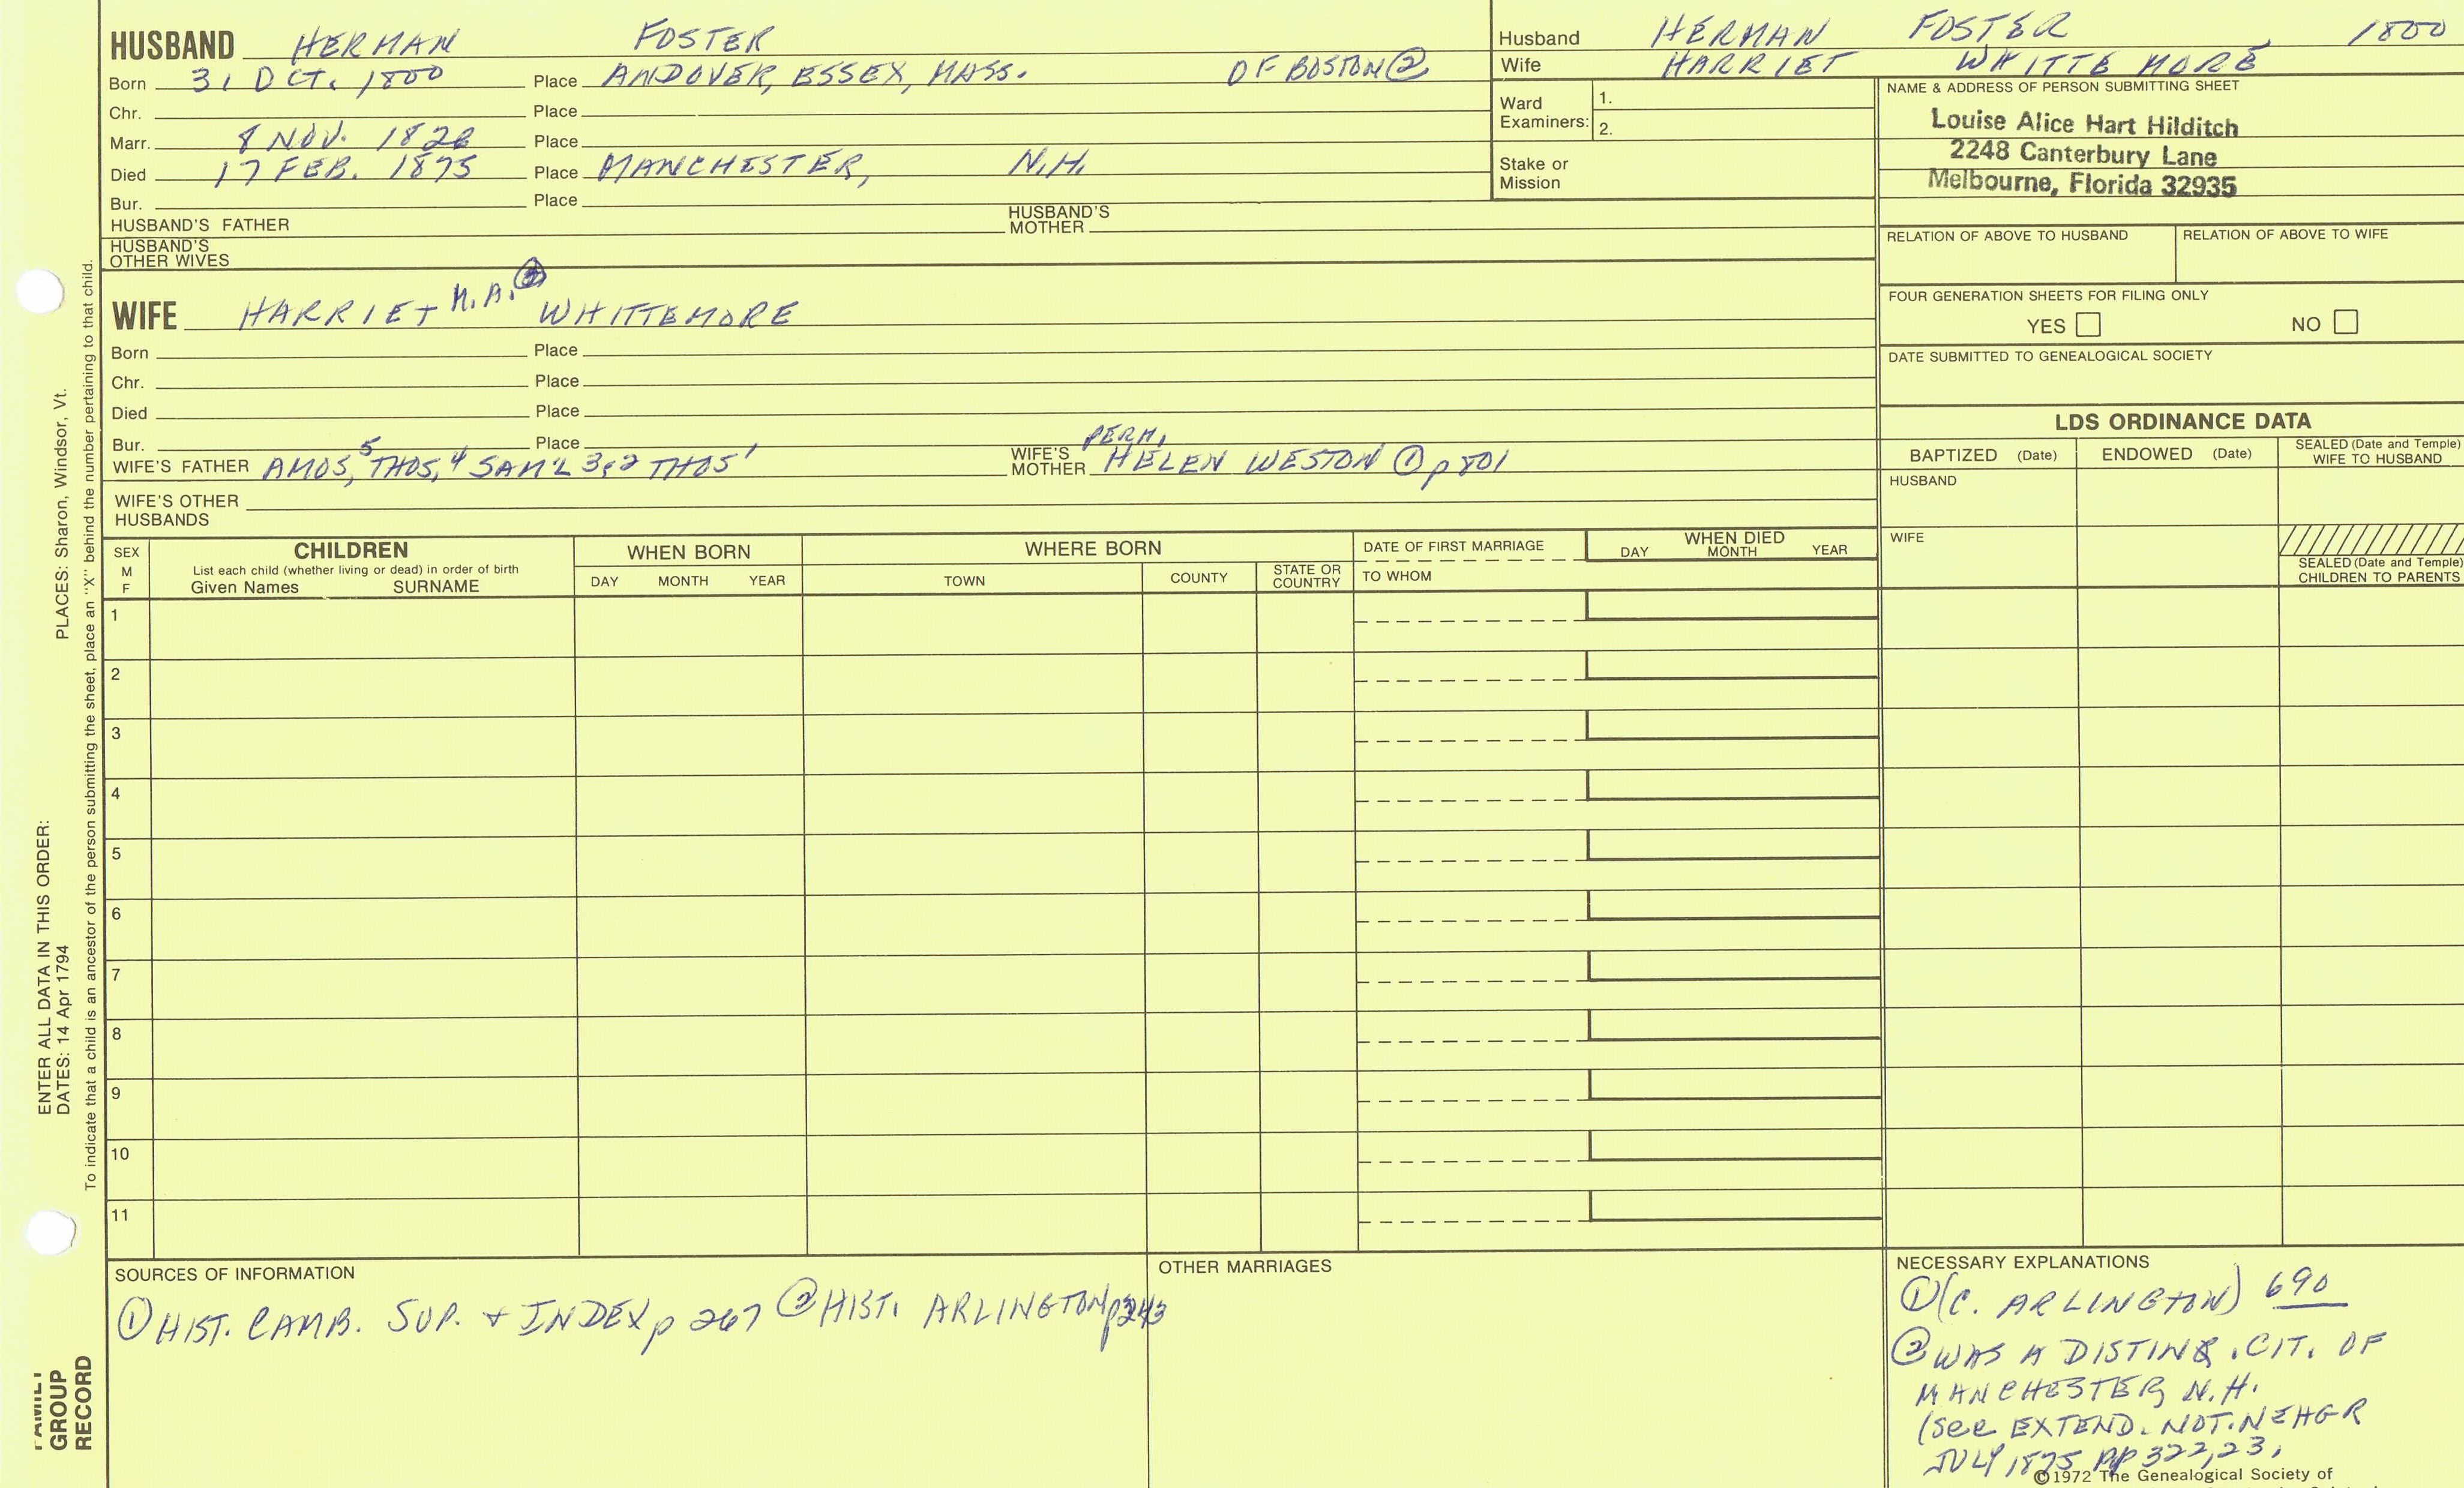 HUSBAND HERMAN FOSTER
Born 31 OCT. 1800 Place ANDOVER, ESSEX, MASS. OF BOSTON ②
Chr. Place
Marr. 8 NOV. 1826 Place
Died 17 FEB. 1875 Place MANCHESTER, N.H.
Bur. Place
HUSBAND'S FATHER HUSBAND'S MOTHER
HUSBAND'S OTHER WIVES
Husband HERMAN FOSTER, 1800
Wife HARRIET WHITTEMORE
Ward Examiners: 1.
2.
Stake or Mission
NAME & ADDRESS OF PERSON SUBMITTING SHEET
Louise Alice Hart Hilditch
2248 Canterbury Lane
Melbourne, Florida 32935
RELATION OF ABOVE TO HUSBAND RELATION OF ABOVE TO WIFE
FOUR GENERATION SHEETS FOR FILING ONLY
YES NO
DATE SUBMITTED TO GENEALOGICAL SOCIETY
WIFE HARRIET M.A. ② WHITTEMORE
Born Place
Chr. Place
Died Place
Bur. Place
WIFE'S FATHER AMOS,5 THOS,4 SAM'L 3,2 THOS1 WIFE'S MOTHER HELEN WESTON ① p 801
PERH,
WIFE'S OTHER HUSBANDS
LDS ORDINANCE DATA
BAPTIZED (Date) ENDOWED (Date) SEALED (Date and Temple) WIFE TO HUSBAND
HUSBAND
WIFE
SEALED (Date and Temple) CHILDREN TO PARENTS
SEX M F
CHILDREN
List each child (whether living or dead) in order of birth
Given Names SURNAME
WHEN BORN
DAY MONTH YEAR
WHERE BORN
TOWN COUNTY STATE OR COUNTRY
DATE OF FIRST MARRIAGE
TO WHOM
WHEN DIED
DAY MONTH YEAR
1
2
3
4
5
6
7
8
9
10
11
SOURCES OF INFORMATION
① HIST. CAMB. SUP. + INDEX p 267 ② HIST. ARLINGTON p243
OTHER MARRIAGES
NECESSARY EXPLANATIONS
① (C. ARLINGTON) 690
② WAS A DISTING. CIT. OF
MANCHESTER, N.H.
(see EXTEND. NOT. NEHGR
JULY 1875 pp 322,23,
©1972 The Genealogical Society of
PLACES: Sharon, Windsor, Vt.
ENTER ALL DATA IN THIS ORDER:
DATES: 14 Apr 1794
To indicate that a child is an ancestor of the person submitting the sheet, place an "X" behind the number pertaining to that child.
FAMILY
GROUP
RECORD